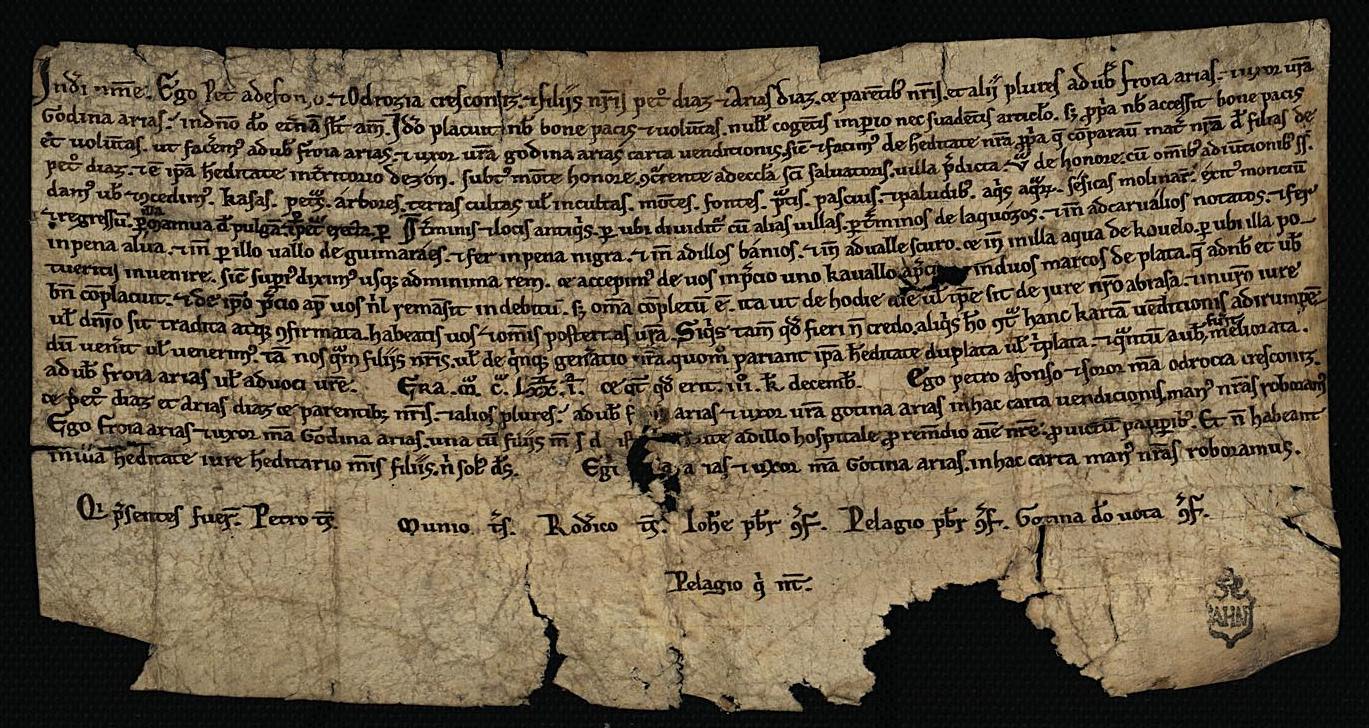 In dei nme. Ego Petr adefonso. ⁊ Odrozia cresconiz. ⁊ filijs nr̃is petr̊ diaz ⁊ Arias diaz. ce parentib nr̃is. et alij plures ad ub̃ froia arias. ⁊ uxor ura
Godina arias. in dno do etr̃nã st̃ am̃. Ido placuit nb̃ bone pacis ⁊ uolũtas. null cogentis imperio nec suadetis articlo. sꝫ ꝓpria nb̃ accessit bone pacis
et uolũtas. ut facem̃ ad ub̃ froia arias. ⁊ uxor ura godina arias carta uenditionis. sic̃ ⁊ facim̃ de heditate nr̃a ꝓpra q̃ cõparaũ mat̃ nr̃a đ filias de
petr̊ diaz. ⁊ ẽ ipã heditate in territorio dezõn. subt̃ mõte honore. ꝯcr̃ente ad eccla sc̃i saluatoris. uilla p̃dicta de honore. cũ om̃ib adiũtionib
dam ub̃ ⁊ ꝯcedim. kasas. arbores. terras cultas ul̃ incultas. mõtes. fontes. p̃tis. pascuis. ⁊ paludib. aq̃s sesicas molinar̃. exit̃ moncium
⁊ regressũ. t̃minis ⁊ locis antiq̃s. ꝑ ubi diuidit̃ cũ alias uillas. ꝑ t̃minos de laquozos. ⁊ in ad carualios notatos. ⁊ fer
in pena alua. ⁊ in ꝑ illo uallo de guimaraes. ⁊ fer in pena nigra. ⁊ in ad illos banios. ⁊ in ad ualle scuro. ce in in illa aqua de kouelo. ꝑ ubi illa po
tueritis inuenire. sic̃ supr̃ dixim usqꝫ ad minima rem. ce accepim de uos in p̃cio uno kauallo induos marcos de plata. q̃ ad nb̃ et ub̃
bñ cõplacuit. ⁊ de ip̃o p̃cio ap̃ uos nl̃ remãsit in debitũ. sꝫ om̃a cõpletũ ẽ. ita ut de hodie die ul̃ tp̃e sit de iure nr̃o abrasa. ⁊ in ur̃o iure
ul̃ dnio sit tradita atqꝫ ꝯfirmata. habeatis uos ⁊ omis posteritas ur̃a. Siq̃s tam̃ q̃đ fieri ñ credo. aliq̃s ho ꝯt̃ hanc kartã uẽditionis ad irumpẽ
dũ uen̄it ul̃ uenerim. tã nos q̃m filijs nr̃is. ul̃ de q̃nqꝫ genatio nr̃a. quom̃ pariant ipã heditate duplata ul̃ t̃plata. ⁊ q̃ntũ a ub̃ fuit meliorata.
ad ub̃ froia arias ul̃ ad uoci ur̃e. Era ce qt̃ q̃đ erit. k̃ decemb̃. Ego petro afonso ⁊ soror mã odrocia cresconiz.
ce petr̊ diaz et Arias diaz ce parentibꝫ nr̃is. ⁊ alios plures. ad ub̃ f arias ⁊ uxor ur̃a gotina arias in hac carta uendicionis man̊ nr̃as roboram̃
Ego froia arias ⁊ uxor mã Godina arias. una cũ filijs ad illo hospitale. ꝓ remedio aĩe nr̃e. ꝓ uictũ pauꝑib. Et ñ habeant
heditate iure hẽditario mis filijs. ñ sol̃ d̃s. Ego arias ⁊ uxor mã Gotina arias. in hac carta man̊ nr̃as roboramus.
Qi p̃sentes fuer̃. Petro t̃s. Munio t̃s. Rod̃ico t̃s. Ioh̃e pb̃r ꝯf̃. Pelagio pb̃r ꝯf̃. Gotina do uota ꝯf̃.
Pelagio q̃ nt̃.
AHN